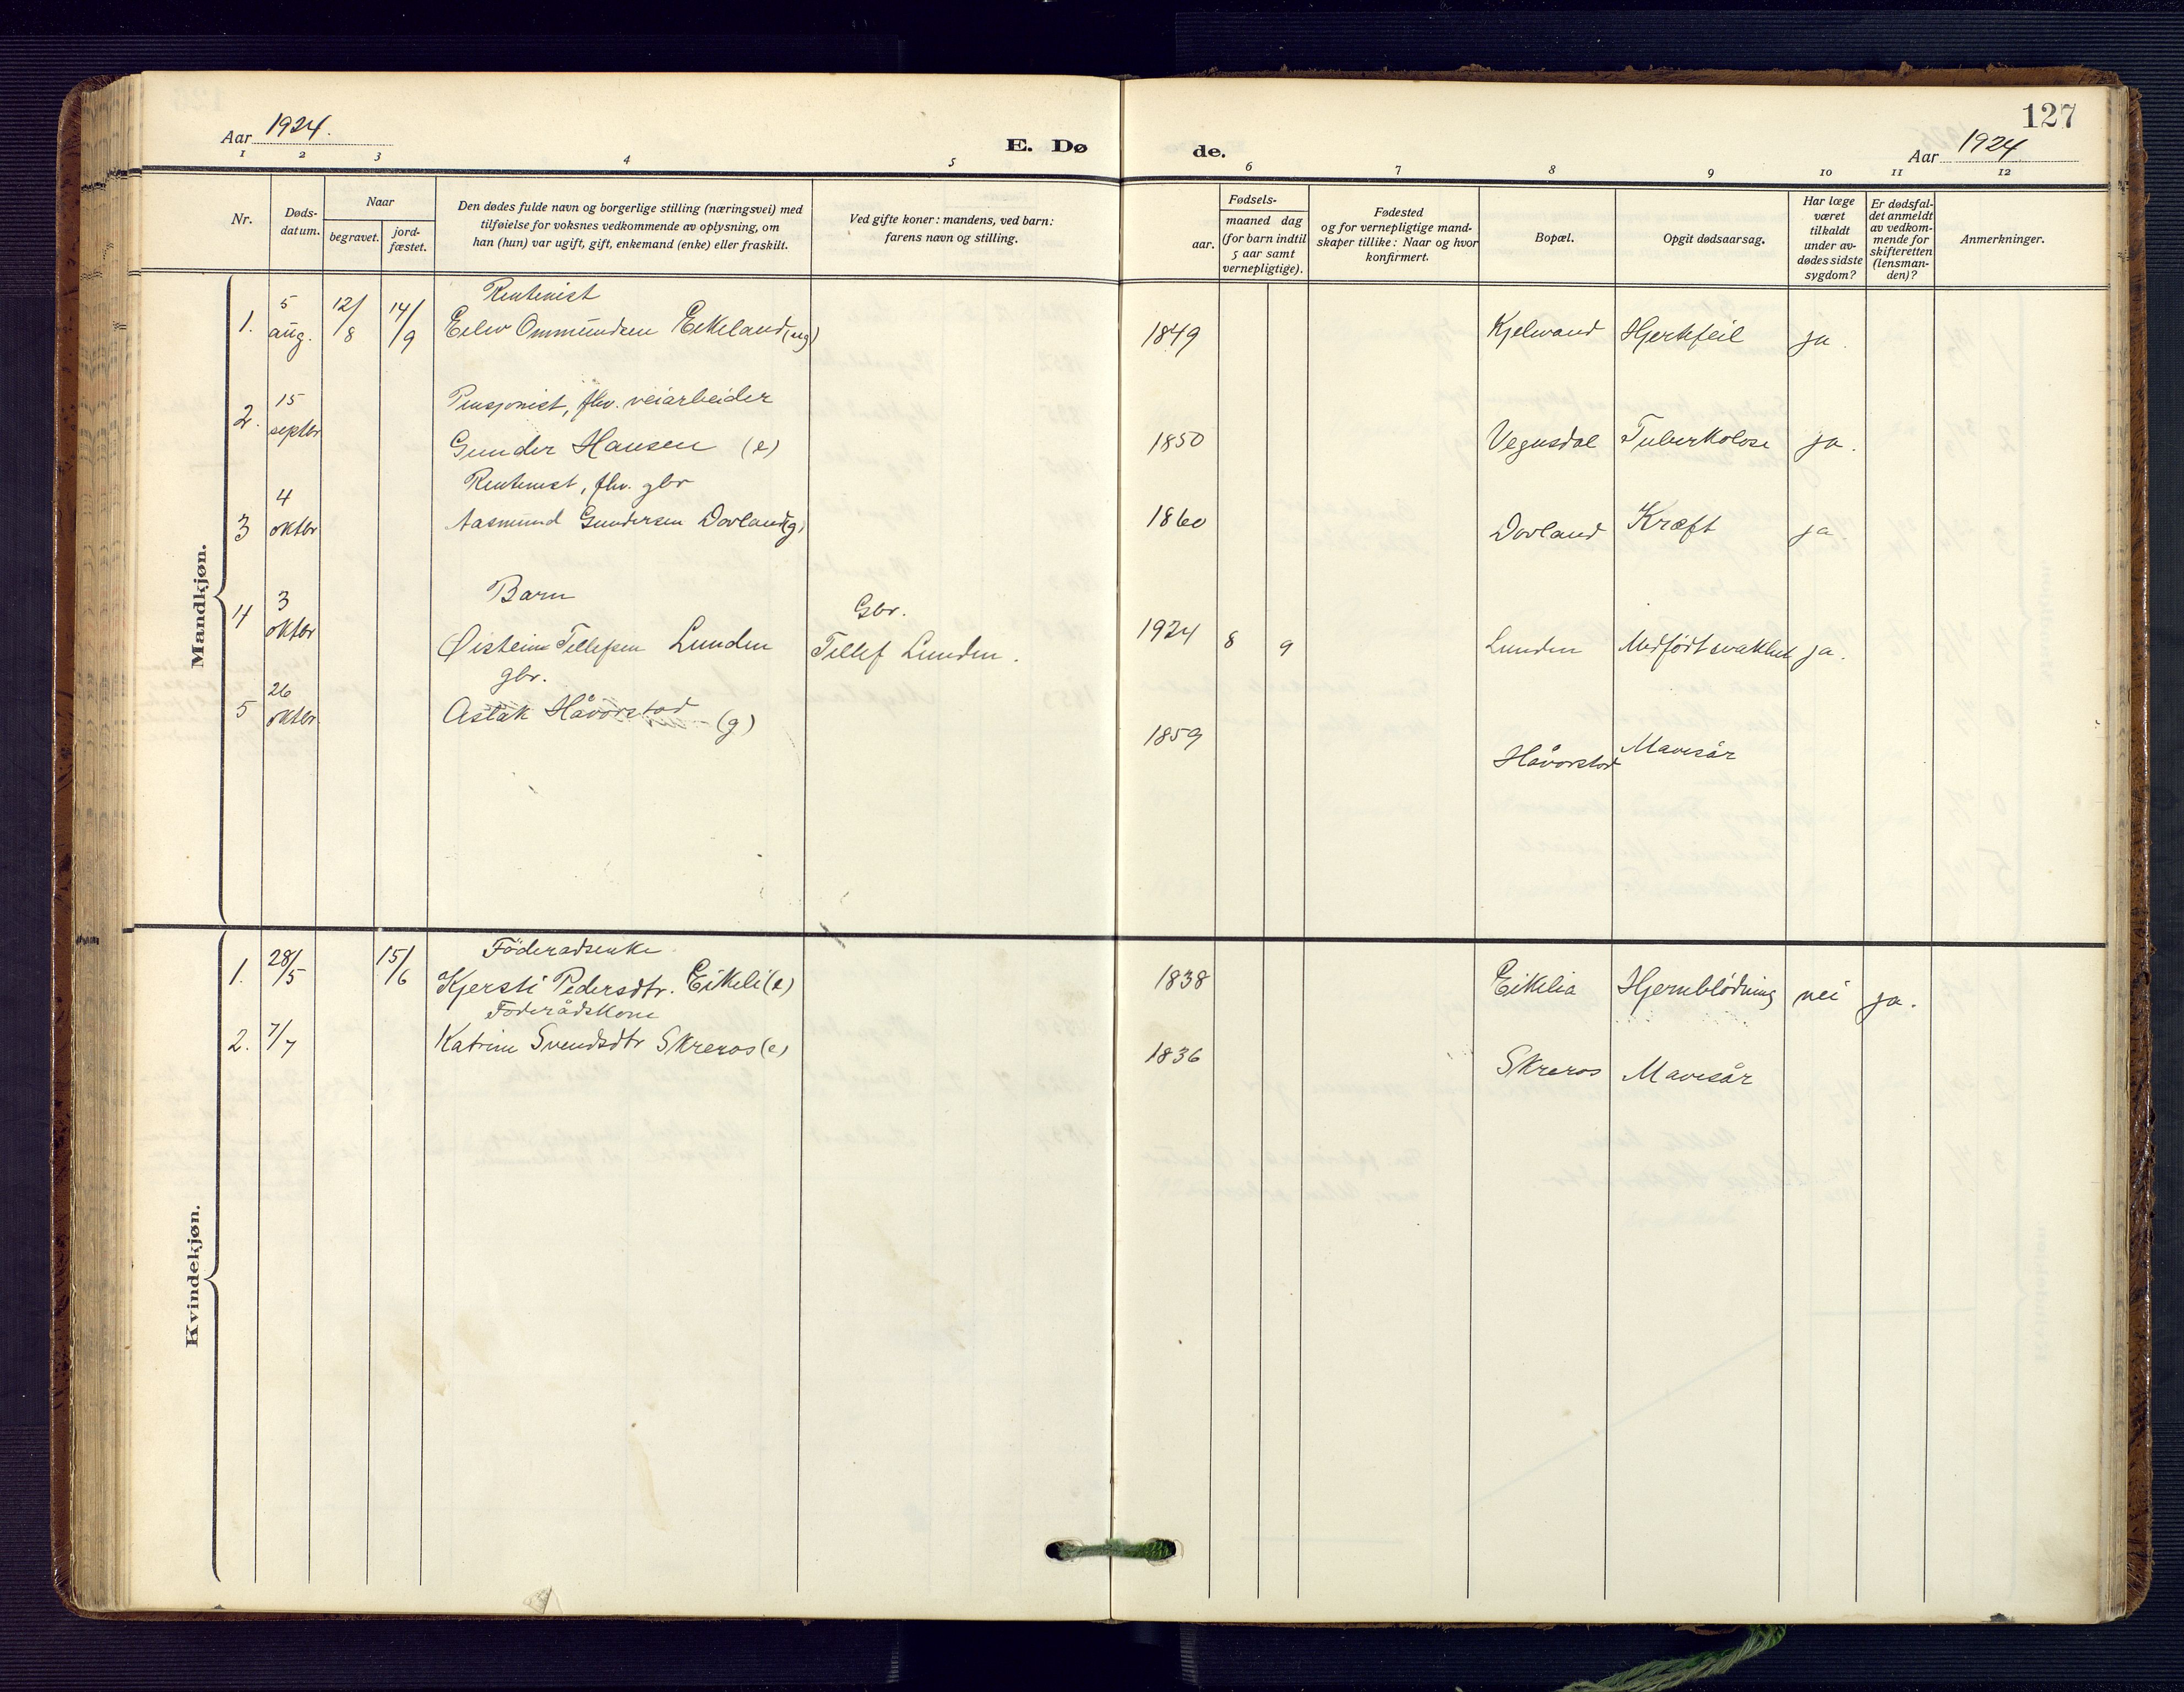 127
Aar 1924.
E. Dø
de.
Aar 1924
1 2 3 4 5 6 7 8 9 10 11 12
Nr.
Døds-
datum.
Naar
begravet.
jord-
fæstet.
Den dødes fulde navn og borgerlige stilling (næringsvei) med
tilføielse for voksnes vedkommende av oplysning, om
han (hun) var ugift, gift, enkemand (enke) eller fraskilt.
Ved gifte koner: mandens, ved barn:
farens navn og stilling.
Fødsels-
aar.
maaned dag
(for barn indtil
5 aar samt
vernepligtige).
Fødested
og for vernepligtige mand-
skaper tillike: Naar og hvor
konfirmert.
Bopæl.
Opgit dødsaarsag.
Har læge
været
tilkaldt
under av-
dødes sidste
sygdom?
Er dødsfal-
det anmeldt
av vedkom-
mende for
skifteretten
(lensman-
den)?
Anmerkninger.
Mandkjøn.
Rentenist
1. 5 aug. 12/8 14/9 Eilev Ommundsen Eikeland (ug) 1849 Kjelevand Hjertefeil ja.
Pensjonist, fhv. veiarbeider
2. 15 septbr Gunder Hansen (e) 1850 Vegusdal Tuberkolose ja.
Rentenist, fhv. gbr
3 4 oktbr Aasmund Gundersen Dovland (g) 1860 Dovland Kræft ja
Barn Gbr.
4 3 oktbr Øistein Tellefsen Lunden Tellef Lunden. 1924 8 9 Lunden Medfødt svakhet ja.
gbr.
5 26 oktbr Aslak Håvorstad (g) 1859 Håvorstad Mavesår
Kvindekjøn.
Föderadsenke
1. 28/5 15/6 Kjersti Pedersdtr. Eikeli (e) 1838 Eikelia Hjerneblödning nei ja.
Föderådskone
2. 7/7 Katrine Svendsdtr Skreros (e) 1836 Skreros Mavesår